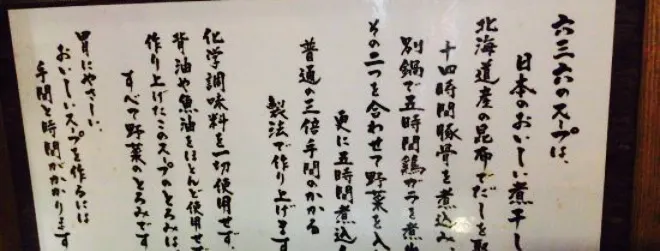 六三六のスープは、
日本のおいしい煮干し
北海道産の昆布でだしを取
十四時間豚骨を煮込み
別鍋で五時間鶏ガラを煮出
その二つを合わせて野菜を入
更に五時間煮込
普通の三倍手間のかかる
製法で作り上げます
化学調味料を一切使用せず、
背油や魚油をほとんど使用せず
作り上げたこのスープのとろみは、
すべて野菜のとろみです
胃にやさしい、
おいしいスープを作るには
手間と時間がかかります